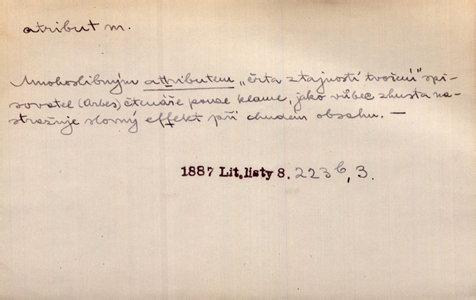 atribut m.
Mnohoslibným attributem „črta z tajností tvoření" spi-
sovatel (Arbes) čtenáře pouze klame, jako vůbec zhusta na-
stražuje slovný effekt při chudém obsahu. —
1887 Lit. listy 8. 223 b, 3.